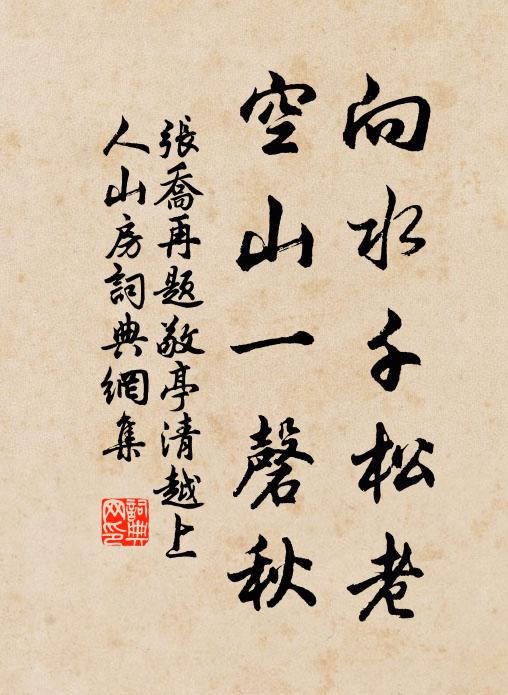 向水千松老
空山一磬秋
張喬再題敬亭清越上
人山房詞典網集
詞典
网印